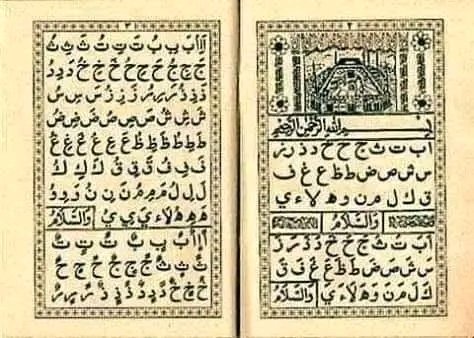 ٢
بسم الله الرحمن الرحيم
ا ب ت ث ج ح خ د ذ ر ز
س ش ص ض ط ظ ع غ ف
ق ك ل م ن و ه لا ء ي
والسلام
اَ بَ تَ ثَ جَ حَ خَ دَ ذَ رَ زَ
سَ شَ صَ ضَ طَ ظَ عَ غَ فَ قَ
كَ لَ مَ نَ وَ هَ لَا ءَ يَ والسلام
٣
اَ اِ اُ بَ بِ بُ تَ تِ تُ ثَ ثِ ثُ
جَ جِ جُ حَ حِ حُ خَ خِ خُ دَ دِ دُ
ذَ ذِ ذُ رَ رِ رُ زَ زِ زُ سَ سِ سُ
شَ شِ شُ صَ صِ صُ ضَ ضِ ضُ
طَ طِ طُ ظَ ظِ ظُ عَ عِ عُ غَ غِ غُ
فَ فِ فُ قَ قِ قُ كَ كِ كُ
لَ لِ لُ مَ مِ مُ نَ نِ نُ وَ وِ وُ
هَ هِ هُ لَا يَ يِ يُ والسلام
اً اٍ اٌ بً بٍ بٌ تً تٍ تٌ
ثً ثٍ ثٌ جً جٍ جٌ حً حٍ حٌ
خً خٍ خٌ دً دٍ دٌ ذً ذٍ ذٌ رً رٍ رٌ